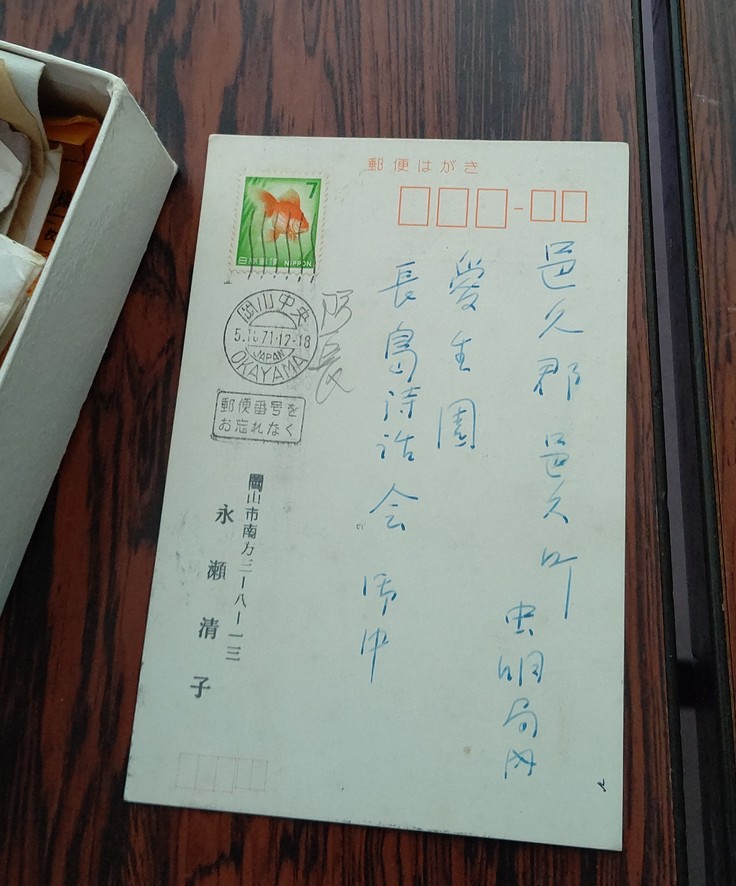 郵便はがき
7
NIPPON
岡山中央
JAPAN
OKAYAMA
郵便番号を
お忘れなく
邑久郡邑久町
虫明局内
愛生園
長島詩話会 御中
岡山市南方三ー八ー一三
永瀬清子